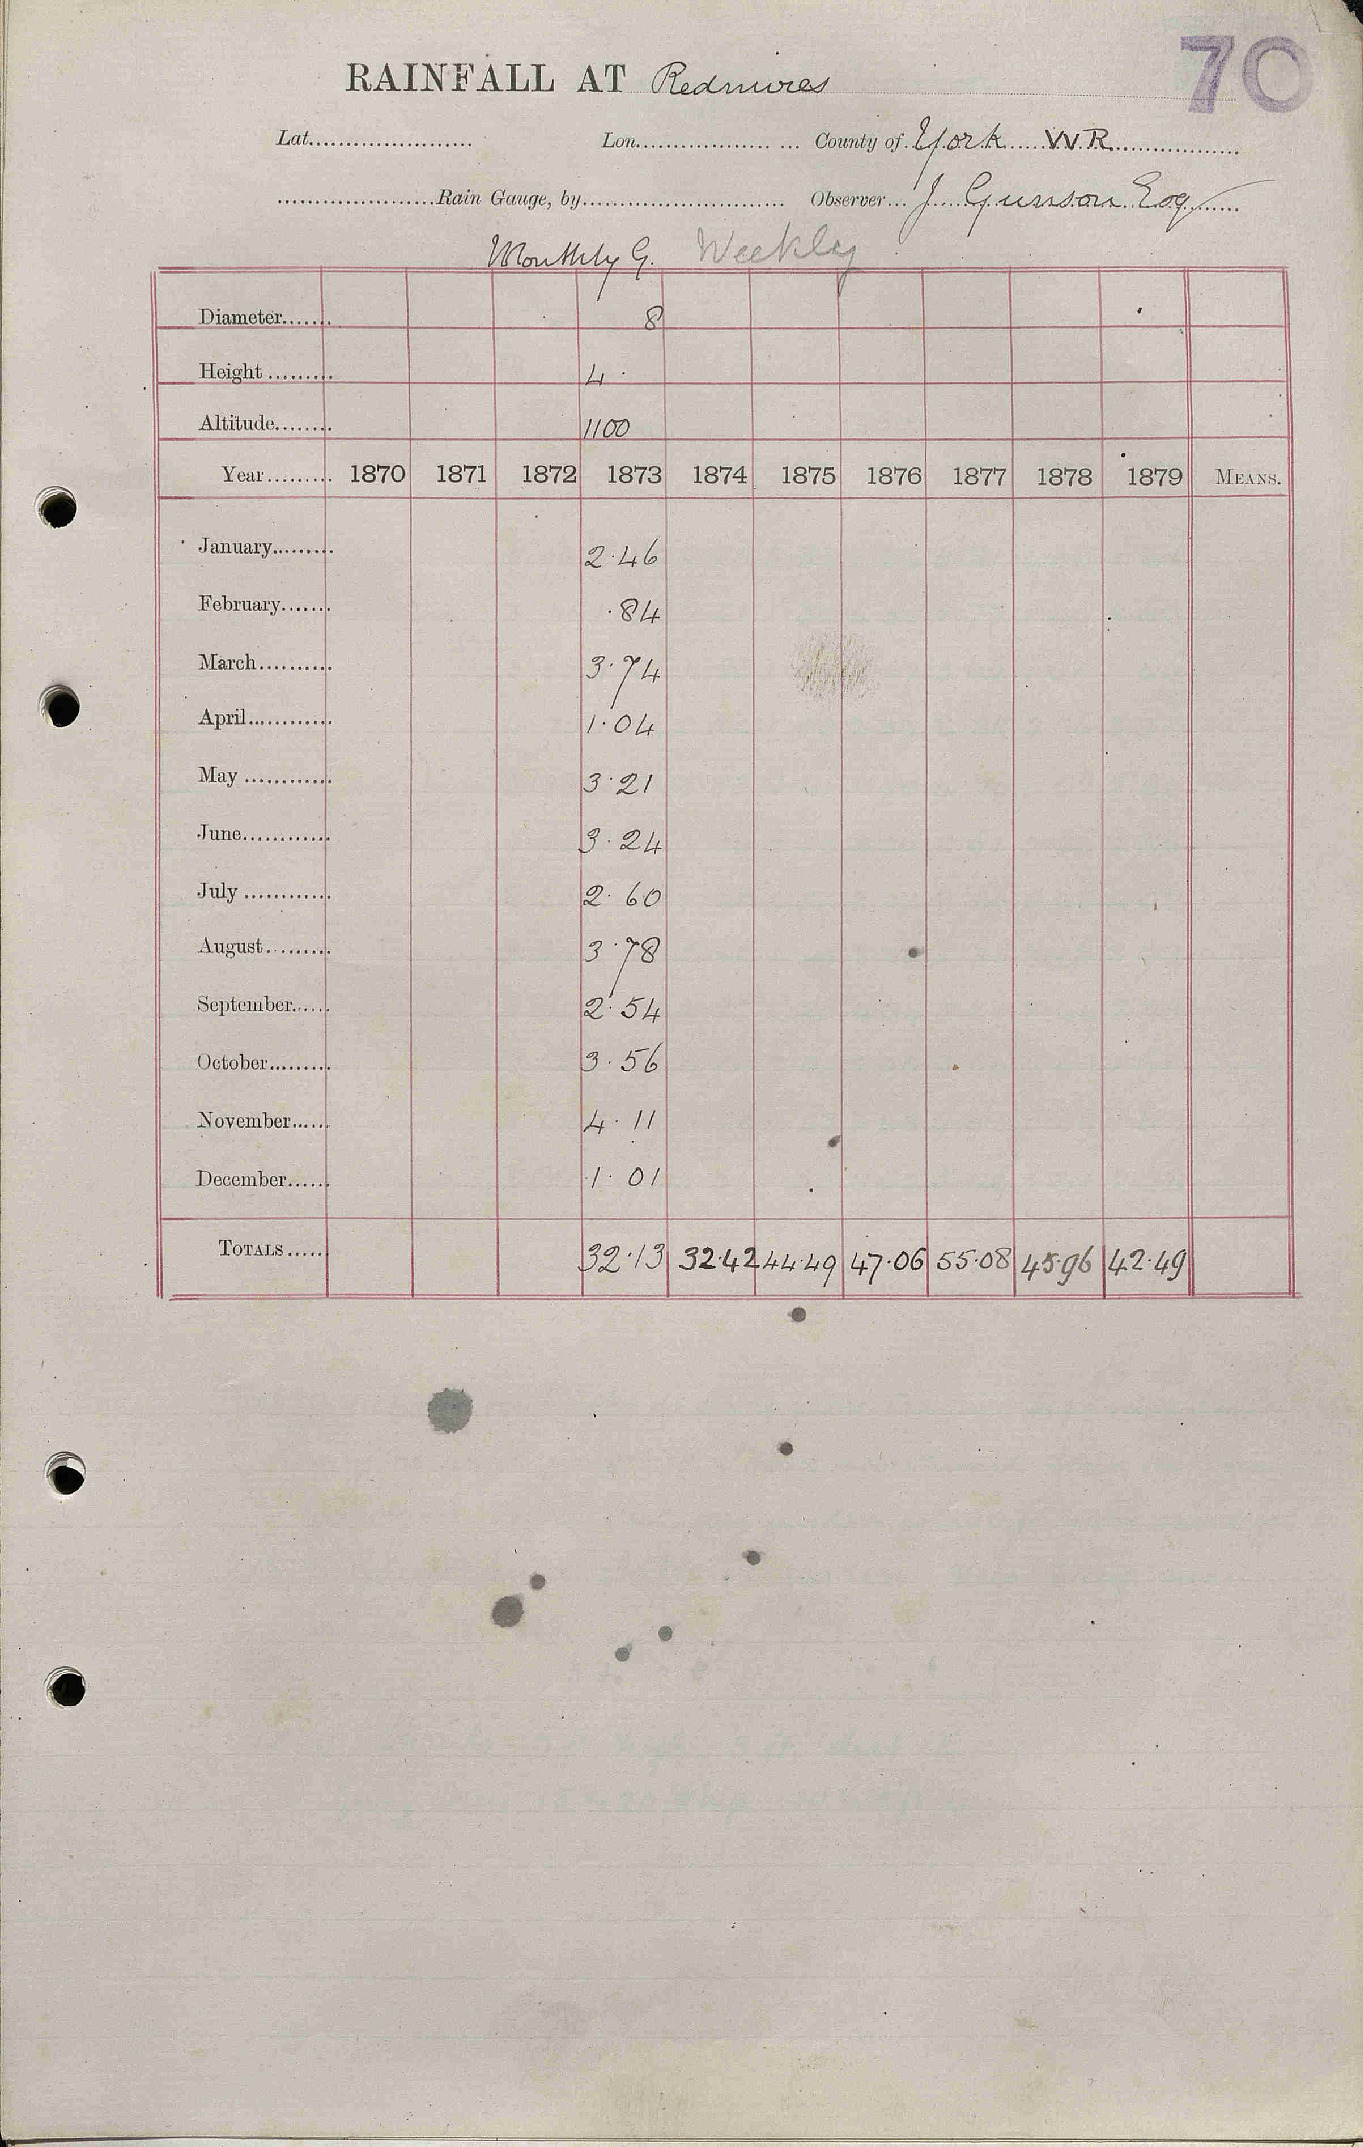 70
RAINFALL AT Redmires
Lat. Lon. County of York W.R.
Rain Gauge, by Observer J. Gunson Esq
Monthly G. Weekly
Diameter 8
Height 4
Altitude 1100
Year 1870 1871 1872 1873 1874 1875 1876 1877 1878 1879 MEANS.
January 2.46
February .84
March 3.74
April 1.04
May 3.21
June 3.24
July 2.60
August 3.78
September 2.54
October 3.56
November 4.11
December 1.01
TOTALS 32.13 32.42 44.49 47.06 55.08 45.96 42.49